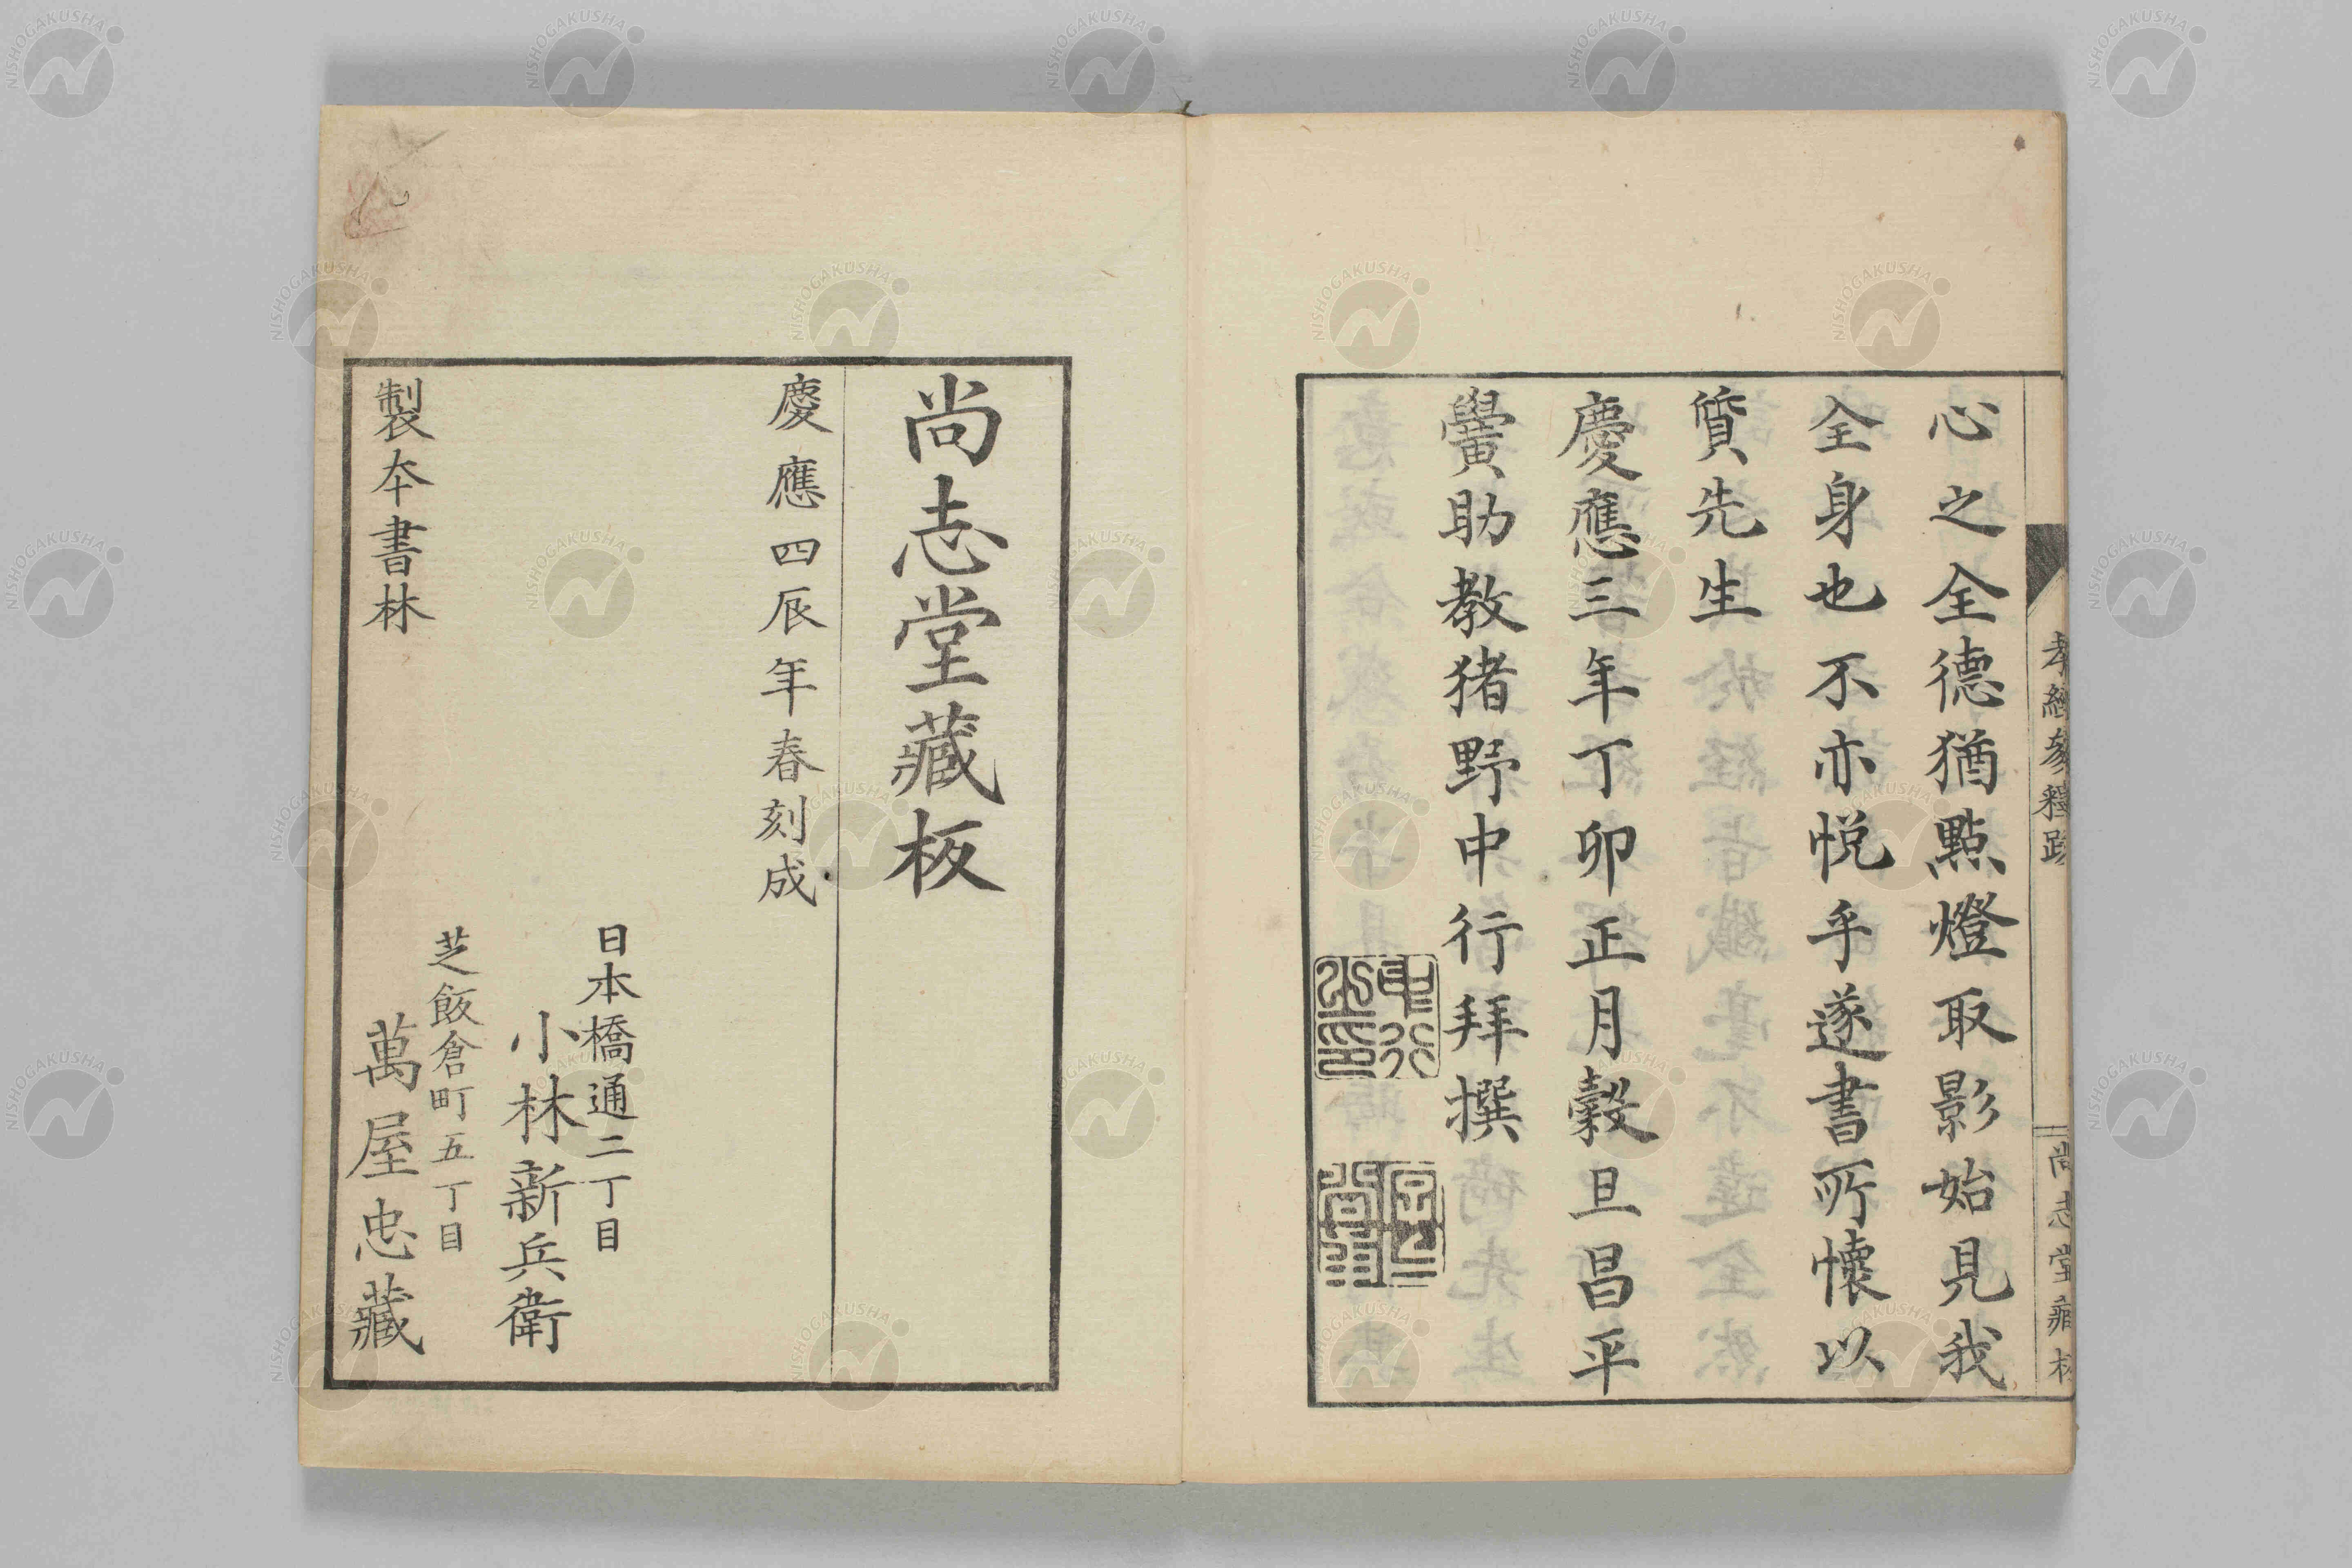 心之全德猶點燈取影始見我
全身也不亦悦乎遂書所懷以
質先生
慶應三年丁卯正月穀旦昌平
黌助教猪野中行拜撰
尚志堂藏板
慶應四辰年春刻成
日本橋通二丁目
小林新兵衛
芝飯倉町五丁目
萬屋忠藏
製本書林
NISHOGAKUSHA